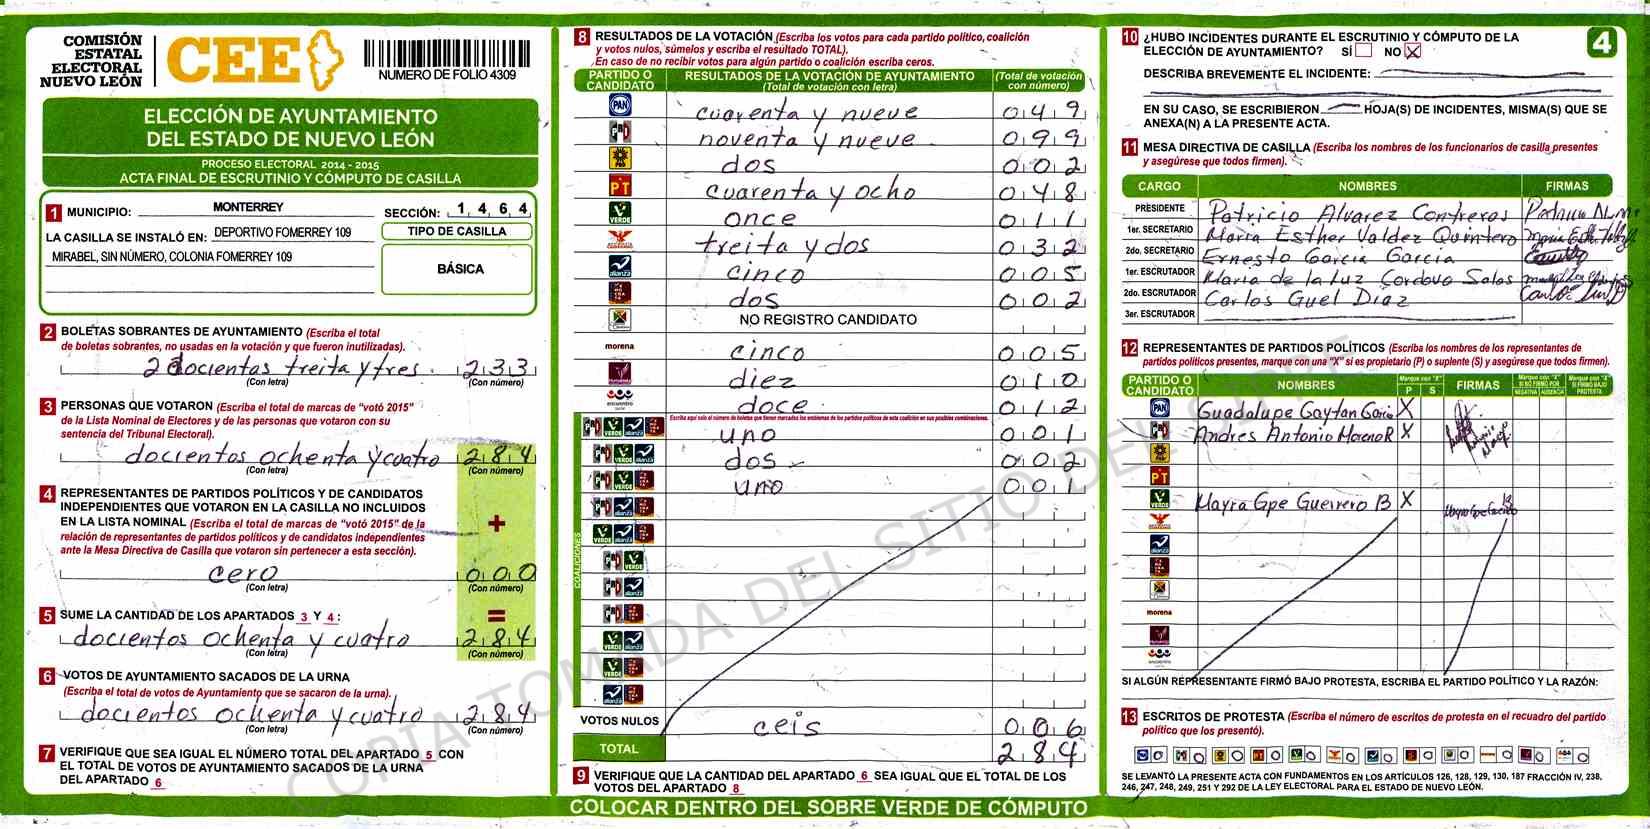 COMISIÓN
ESTATAL
ELECTORAL
NUEVO LEÓN
CEE
NUMERO DE FOLIO 4309
ELECCIÓN DE AYUNTAMIENTO
DEL ESTADO DE NUEVO LEÓN
PROCESO ELECTORAL 2014 - 2015
ACTA FINAL DE ESCRUTINIO Y CÓMPUTO DE CASILLA
1 MUNICIPIO: MONTERREY SECCIÓN: 1 4 6 4
LA CASILLA SE INSTALÓ EN: DEPORTIVO FOMERREY 109
TIPO DE CASILLA
MIRABEL, SIN NÚMERO, COLONIA FOMERREY 109
BÁSICA
2 BOLETAS SOBRANTES DE AYUNTAMIENTO (Escriba el total
de boletas sobrantes, no usadas en la votación y que fueron inutilizadas).
2 docientas treita y tres. 2 3 3
(Con letra) (Con número)
3 PERSONAS QUE VOTARON (Escriba el total de marcas de "votó 2015"
de la Lista Nominal de Electores y de las personas que votaron con su
sentencia del Tribunal Electoral).
docientos ochenta y cuatro 2 8 4
(Con letra) (Con número)
4 REPRESENTANTES DE PARTIDOS POLÍTICOS Y DE CANDIDATOS
INDEPENDIENTES QUE VOTARON EN LA CASILLA NO INCLUIDOS
EN LA LISTA NOMINAL (Escriba el total de marcas de "votó 2015" de la
relación de representantes de partidos políticos y de candidatos independientes
ante la Mesa Directiva de Casilla que votaron sin pertenecer a esta sección).
+
cero 0 0 0
(Con letra) (Con número)
5 SUME LA CANTIDAD DE LOS APARTADOS 3 Y 4 : =
docientos ochenta y cuatro 2 8 4
(Con letra) (Con número)
6 VOTOS DE AYUNTAMIENTO SACADOS DE LA URNA
(Escriba el total de votos de Ayuntamiento que se sacaron de la urna).
docientos ochenta y cuatro 2 8 4
(Con letra) (Con número)
7 VERIFIQUE QUE SEA IGUAL EL NÚMERO TOTAL DEL APARTADO 5 CON
EL TOTAL DE VOTOS DE AYUNTAMIENTO SACADOS DE LA URNA
DEL APARTADO 6
8 RESULTADOS DE LA VOTACIÓN (Escriba los votos para cada partido político, coalición
y votos nulos, súmelos y escriba el resultado TOTAL).
En caso de no recibir votos para algún partido o coalición escriba ceros.
PARTIDO O CANDIDATO RESULTADOS DE LA VOTACIÓN DE AYUNTAMIENTO (Total de votación con letra) (Total de votación con número)
PAN cuarenta y nueve 0 4 9
PRI noventa y nueve 0 9 9
PRD dos 0 0 2
PT cuarenta y ocho 0 4 8
VERDE once 0 1 1
treita y dos 0 3 2
alianza cinco 0 0 5
dos 0 0 2
NO REGISTRO CANDIDATO
morena cinco 0 0 5
diez 0 1 0
encuentro doce 0 1 2
Escriba aquí solo el número de boletas que tienen marcados los emblemas de los partidos políticos de esta coalición en sus posibles combinaciones.
COALICIONES
PRI VERDE alianza uno 0 0 1
PRI VERDE alianza dos 0 0 2
PRI VERDE uno 0 0 1
PRI alianza
VERDE alianza
PRI VERDE
PRI alianza
PRI
VERDE alianza
VERDE
alianza
VOTOS NULOS ceis 0 0 6
TOTAL 2 8 4
9 VERIFIQUE QUE LA CANTIDAD DEL APARTADO 6 SEA IGUAL QUE EL TOTAL DE LOS
VOTOS DEL APARTADO 8
COLOCAR DENTRO DEL SOBRE VERDE DE CÓMPUTO
4
10 ¿HUBO INCIDENTES DURANTE EL ESCRUTINIO Y CÓMPUTO DE LA
ELECCIÓN DE AYUNTAMIENTO? SÍ NO X
DESCRIBA BREVEMENTE EL INCIDENTE:
EN SU CASO, SE ESCRIBIERON HOJA(S) DE INCIDENTES, MISMA(S) QUE SE
ANEXA(N) A LA PRESENTE ACTA.
11 MESA DIRECTIVA DE CASILLA (Escriba los nombres de los funcionarios de casilla presentes
y asegúrese que todos firmen).
CARGO NOMBRES FIRMAS
PRESIDENTE Patricio Alvarez Contreras
1er. SECRETARIO Maria Esther Valdez Quintero
2do. SECRETARIO Ernesto Garcia Garcia
1er. ESCRUTADOR Maria de la Luz Cordova Salas
2do. ESCRUTADOR Carlos Guel Diaz
3er. ESCRUTADOR
12 REPRESENTANTES DE PARTIDOS POLÍTICOS (Escriba los nombres de los representantes de
partidos políticos presentes, marque con una "X" si es propietario (P) o suplente (S) y asegúrese que todos firmen).
PARTIDO O CANDIDATO NOMBRES Marque con "X" P S FIRMAS Marque con "X" SI NO FIRMÓ POR NEGATIVA AUSENCIA Marque con "X" SI FIRMÓ BAJO PROTESTA
PAN Guadalupe Gaytan Garcia X
PRI Andres Antonio Moreno R X
PRD
PT
VERDE Mayra Gpe Guerrero B X
alianza
morena
encuentro
SI ALGÚN REPRESENTANTE FIRMÓ BAJO PROTESTA, ESCRIBA EL PARTIDO POLÍTICO Y LA RAZÓN:
13 ESCRITOS DE PROTESTA (Escriba el número de escritos de protesta en el recuadro del partido
político que los presentó).
0 0 0 0 0 0 0 0 0 0 0 0
SE LEVANTÓ LA PRESENTE ACTA CON FUNDAMENTOS EN LOS ARTÍCULOS 126, 128, 129, 130, 187 FRACCIÓN IV, 238,
246, 247, 248, 249, 251 Y 292 DE LA LEY ELECTORAL PARA EL ESTADO DE NUEVO LEÓN.
COPIA TOMADA DEL SITIO DEL SIPRE